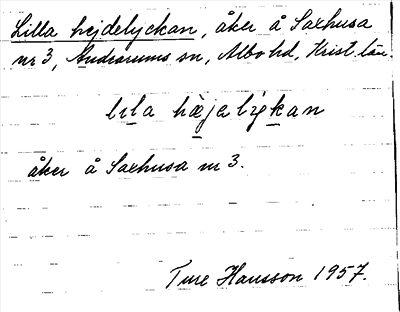 Lilla hejdelyckan, åker å Saxhusa
nr 3, Andrarums sn, Albo hd, Krist. län.
lila hæjalykan
åker å Saxhusa nr 3.
Ture Hansson 1957.